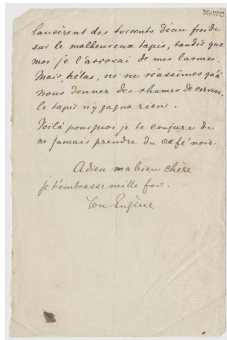 MsWC
lancèrent des torrents d'eau froide
sur le malheureux tapis, tandis que
moi je l'arrosai de mes larmes.
Mais, hélas, ne réussîmes qu'à
nous donner des rhumes de cerveau,
le tapis n'y gagna rien.
Voilà pourquoi je te conjure de
ne jamais prendre du café noir.
Adieu ma bien chère
je t'embrasse mille fois.
Ton Eugène